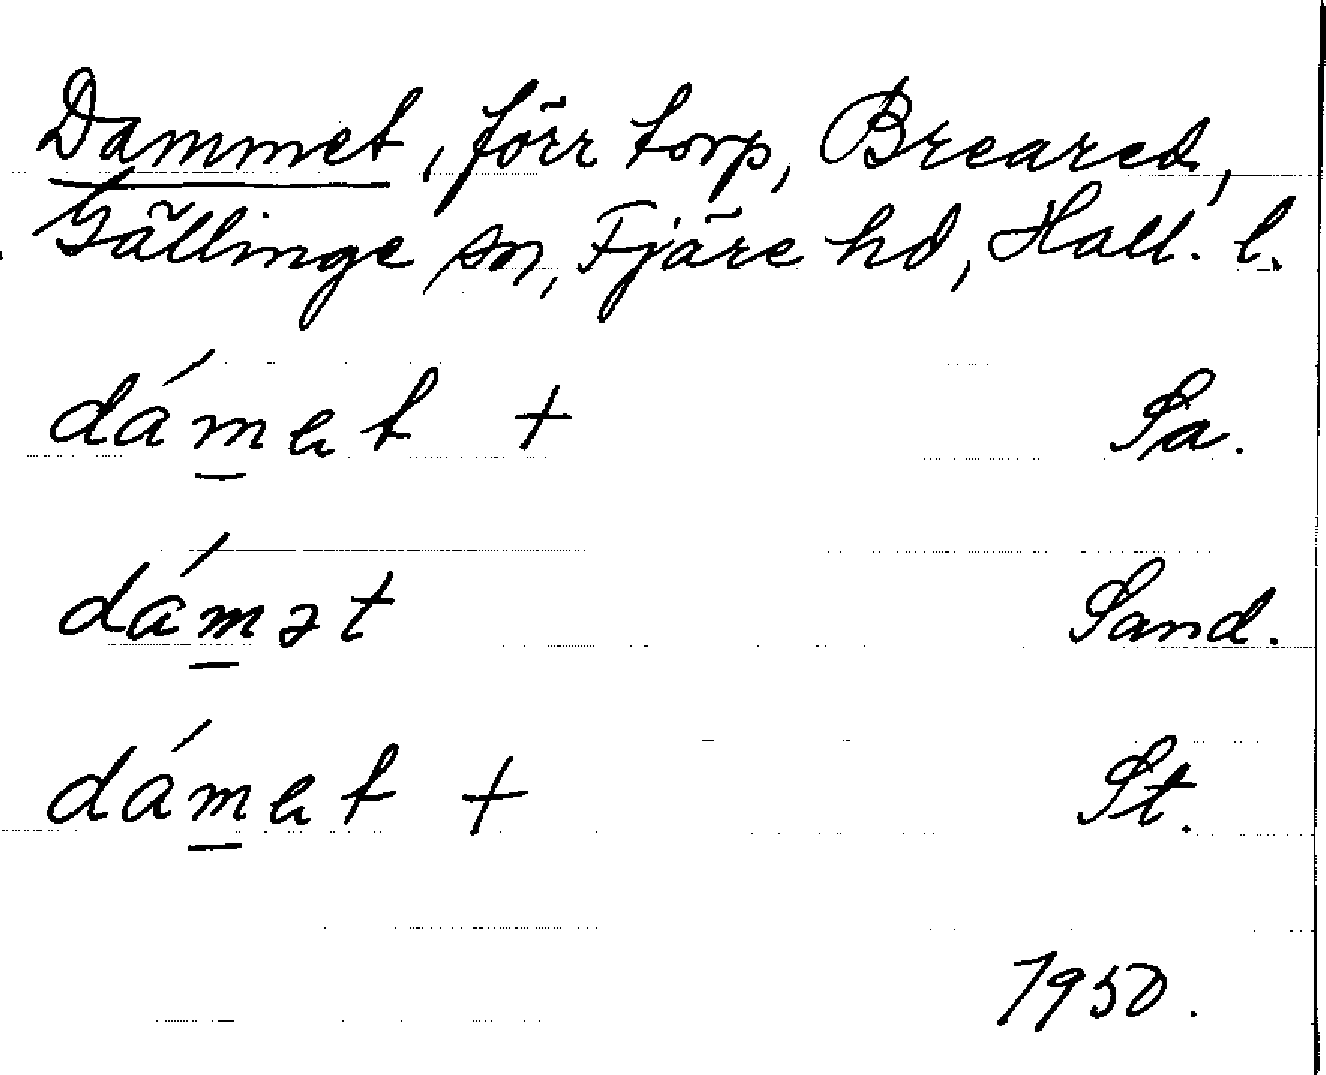 Dammet, förr torp, Breared,
Gällinge sn, Fjäre hd, Hall. l.
dámet + Sa.
dámət Sand.
dámet + St.
1950.